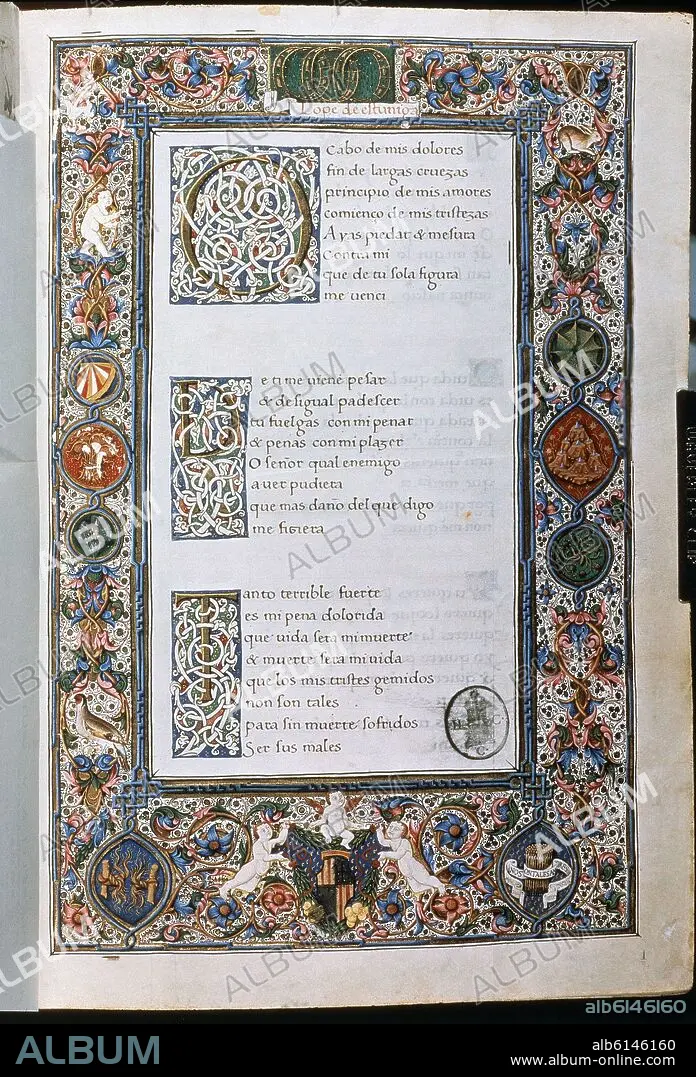 Lope de estuniga
O Cabo de mis dolores
fin de largas cruezas
principio de mis amores
comienço de mis tristezas
Ayas piedat & mesura
Contra mi
que de tu sola figura
me venci
De ti me viene pesar
& desigual padescer
tu fuelgas con mi penar
& penas con mi plazer
O señor qual enemigo
auer pudiera
que mas daño del que digo
me fiziera
Tanto terrible fuerte
es mi pena dolorida
que vida sera mi muerte
& muerte sera mi vida
que los mis tristes gemidos
non son tales
para sin muerte sofridos
Ser sus males
ALBUM
alb6146160
ALBUM
alb6146160
www.album-online.com